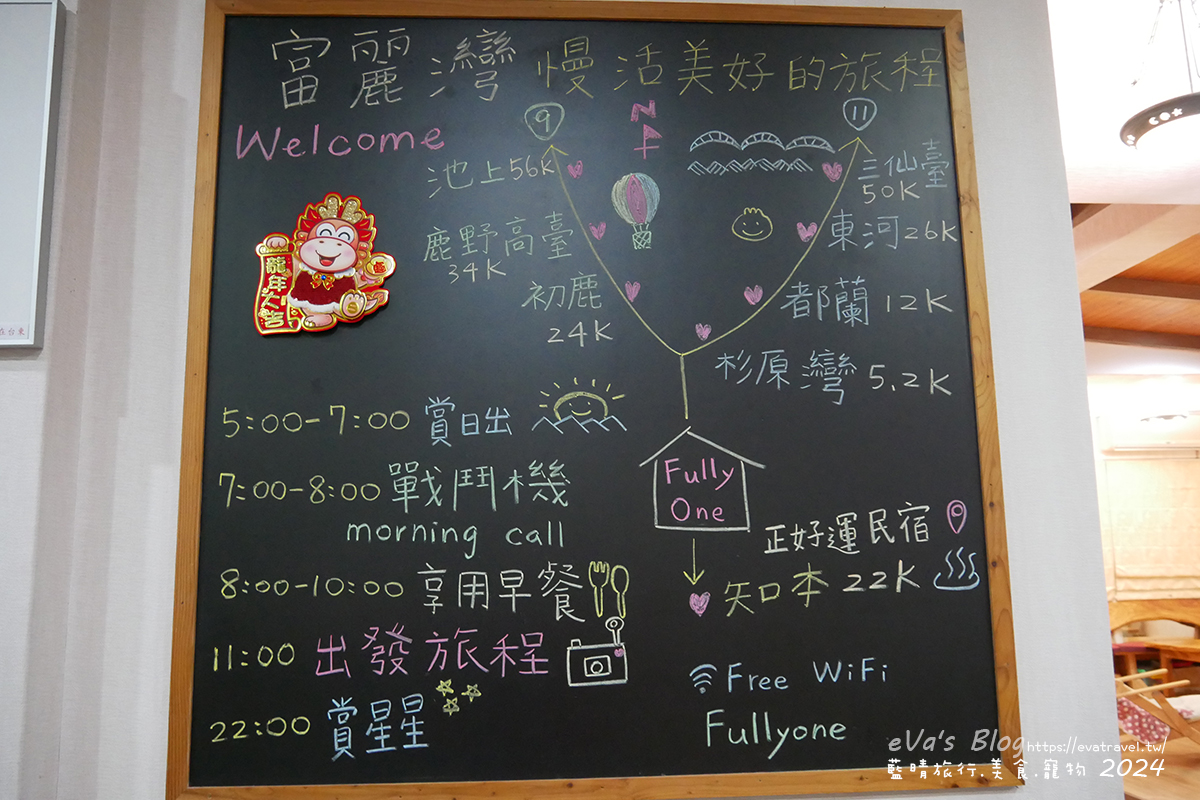 富麗灣 慢活美好的旅程
Welcome
9
N
11
池上 56K
三仙臺
50K
鹿野高臺
34K
東河 26K
初鹿
24K
都蘭 12K
杉原灣 5.2K
龍年大吉
在台東
5:00-7:00 賞日出
7:00-8:00 戰鬥機
morning call
8:00-10:00 享用早餐
11:00 出發旅程
22:00 賞星星
Fully
One
正好運民宿
知本 22K
Free WiFi
Fullyone
eVa's Blog https://evatravel.tw/
藍晴旅行.美食.寵物 2024